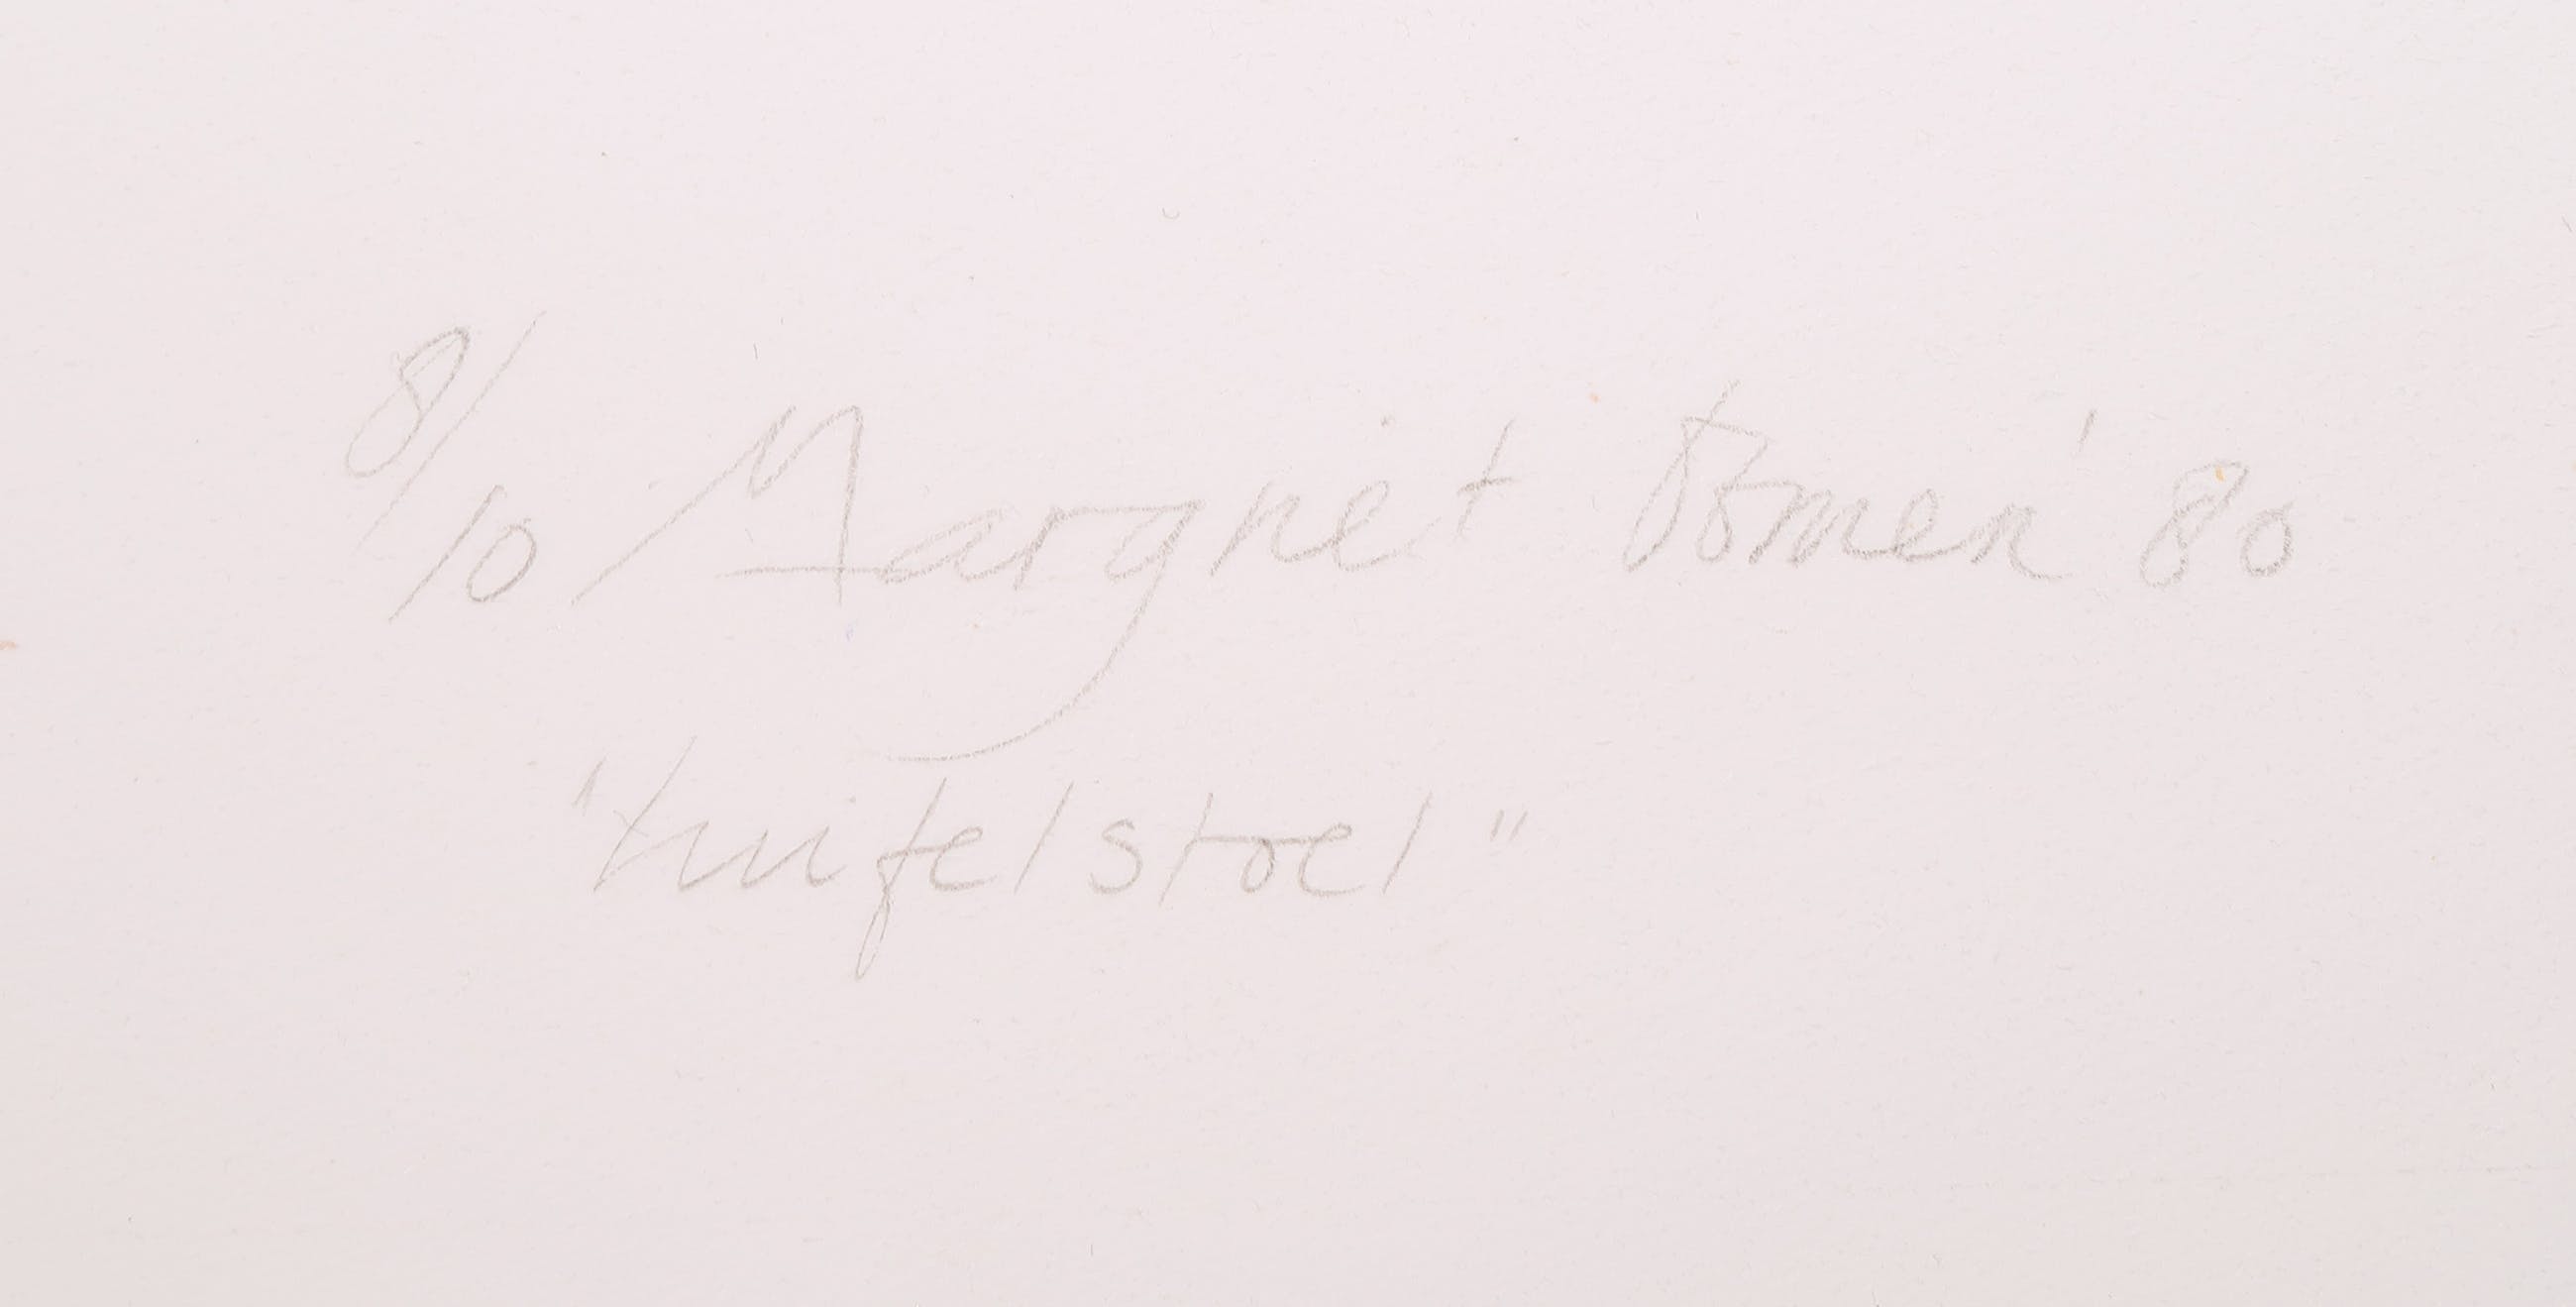 8/10 Margriet Bomen '80
"Knifelstoel"